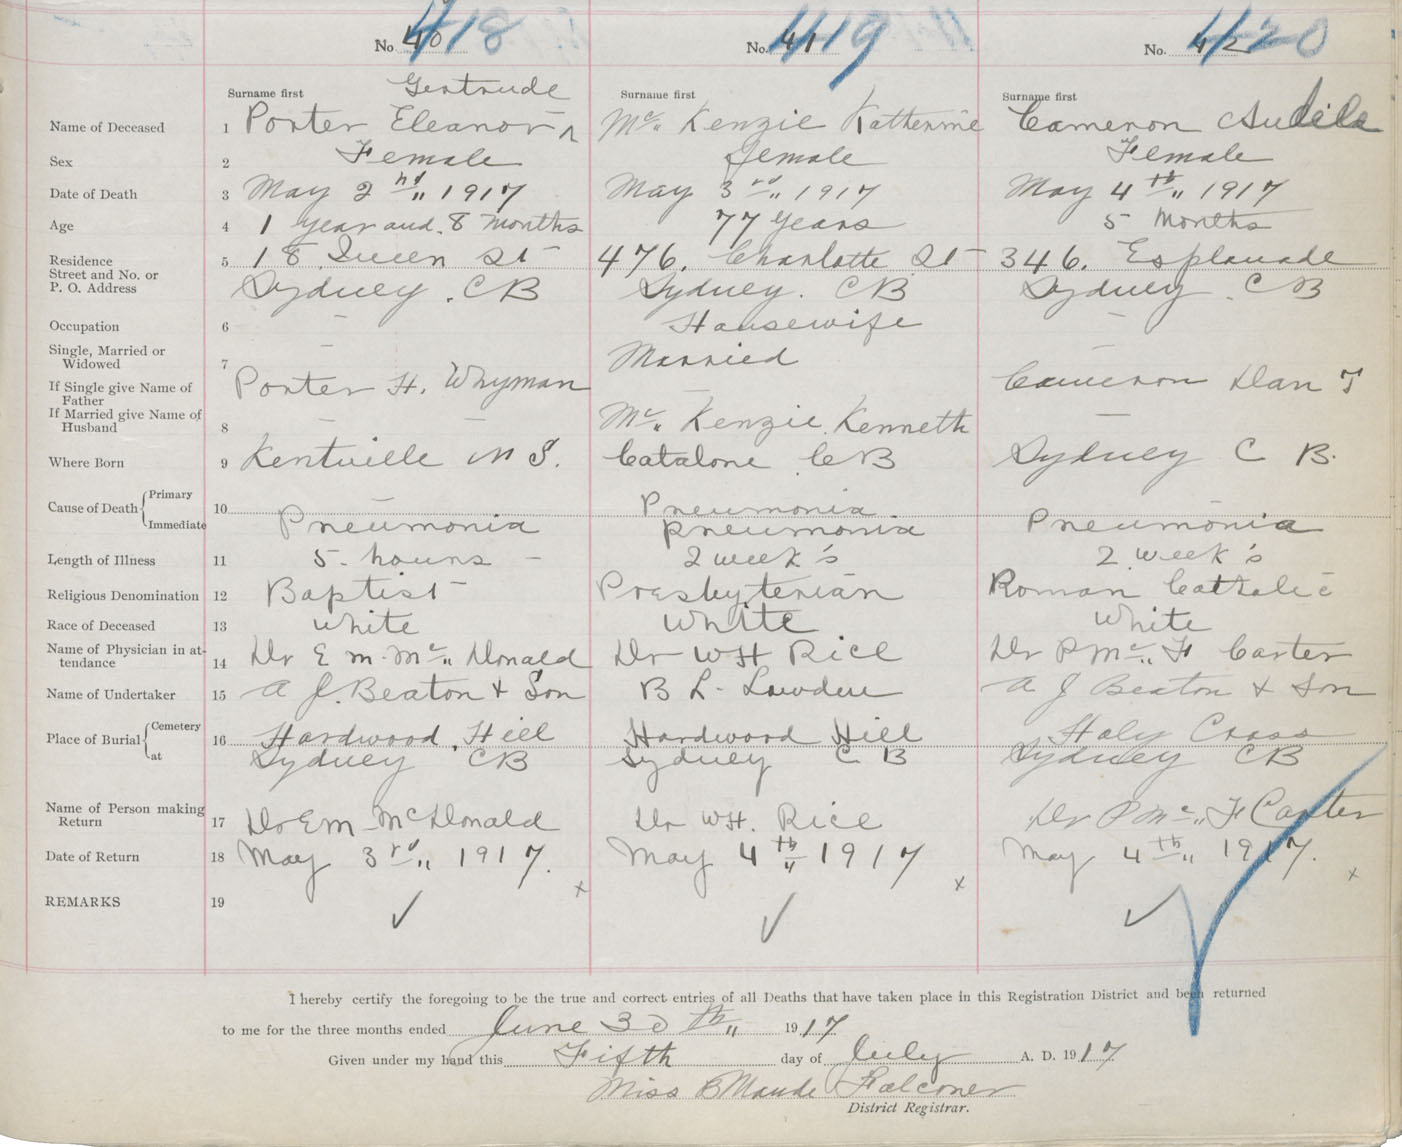 No 40 418
No. 41 419
No. 42 420
Surname first Gertrude
Surname first
Surname first
Name of Deceased 1 Porter Eleanor ^ Mc„ Kenzie Katherine Cameron
Sex 2 Female Female Female
Date of Death 3 May 2nd„ 1917 May 3rd„ 1917 May 4th„ 1917
Age 4 1 year and 8 Months 77 Years 5 Months
Residence 5 18 Queen St 476. Charlotte St 346. Esplanade
Street and No. or
P. O. Address Sydney. CB Sydney. CB Sydney. CB
Occupation 6 – Housewife –
Single, Married or
Widowed 7 – Married –
If Single give Name of
Father Porter H. Whyman – Cameron Dan J
If Married give Name of
Husband 8 – – Mc„ Kenzie. Kenneth –
Where Born 9 Kentville N S. Catalone CB Sydney C B.
Cause of Death { Primary 10 – Pneumonia. –
Immediate Pneumonia pneumonia Pneumonia
Length of Illness 11 5 - hours – 2 week's 2 week's
Religious Denomination 12 Baptist Presbyterian Roman Catholic
Race of Deceased 13 White White White
Name of Physician in at-
tendance 14 Dr E M. Mc„ Donald Dr WH Rice Dr P Mc„ F Carter
Name of Undertaker 15 A J. Beaton & Son B L. Lowden A J Beaton & Son
Place of Burial { Cemetery 16 Hardwood. Hill Hardwood Hill Holy Cross
at Sydney CB Sydney C B Sydney CB
Name of Person making
Return 17 Dr EM McDonald Dr WH. Rice Dr P Mc„ F Carter
Date of Return 18 May 3rd„ 1917. May 4th„ 1917 May 4th„ 1917.
x x x
REMARKS 19 ✓ ✓ ✓
I hereby certify the foregoing to be the true and correct entries of all Deaths that have taken place in this Registration District and been returned
to me for the three months ended June 30th„ 1917
Given under my hand this Fifth day of July A. D. 1917
Miss B Maude Falconer
District Registrar.